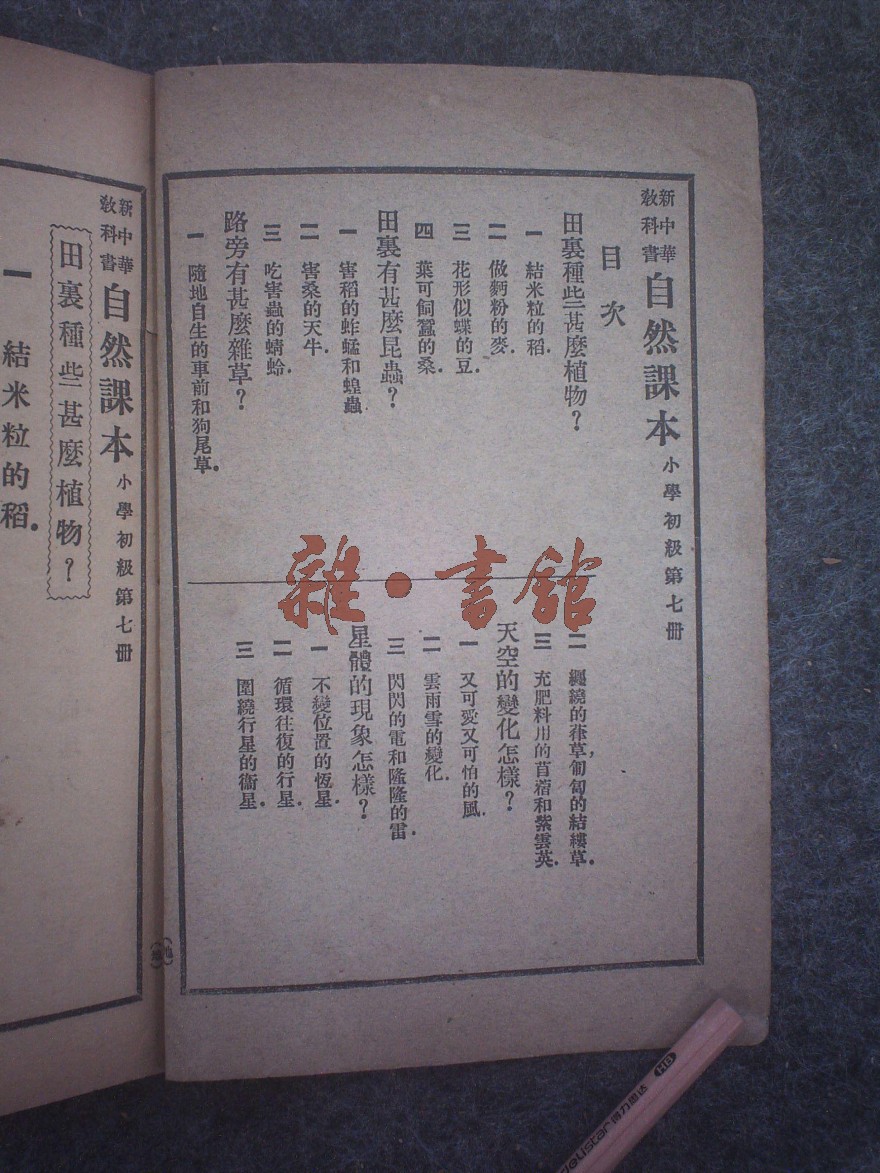 新中華
教科書
自然課本 小學初級第七冊
目次
田裏種些甚麼植物？
一 結米粒的稻．
二 做麪粉的麥．
三 花形似蝶的豆．
四 葉可飼蠶的桑．
田裏有甚麼昆蟲？
一 害稻的蚱蜢和蝗蟲
二 害桑的天牛．
三 吃害蟲的蜻蛉．
路旁有甚麼雜草？
一 隨地自生的車前和狗尾草．
二 纏繞的葎草，匍匐的結縷草．
三 充肥料用的苜蓿和紫雲英．
天空的變化怎樣？
一 又可愛又可怕的風．
二 雲雨雪的變化．
三 閃閃的電和隆隆的雷．
星體的現象怎樣？
一 不變位置的恆星．
二 循環往復的行星．
三 圍繞行星的衞星．
新中華
教科書
自然課本 小學初級第七冊
田裏種些甚麼植物？
一 結米粒的稻．
雜·書館
HB